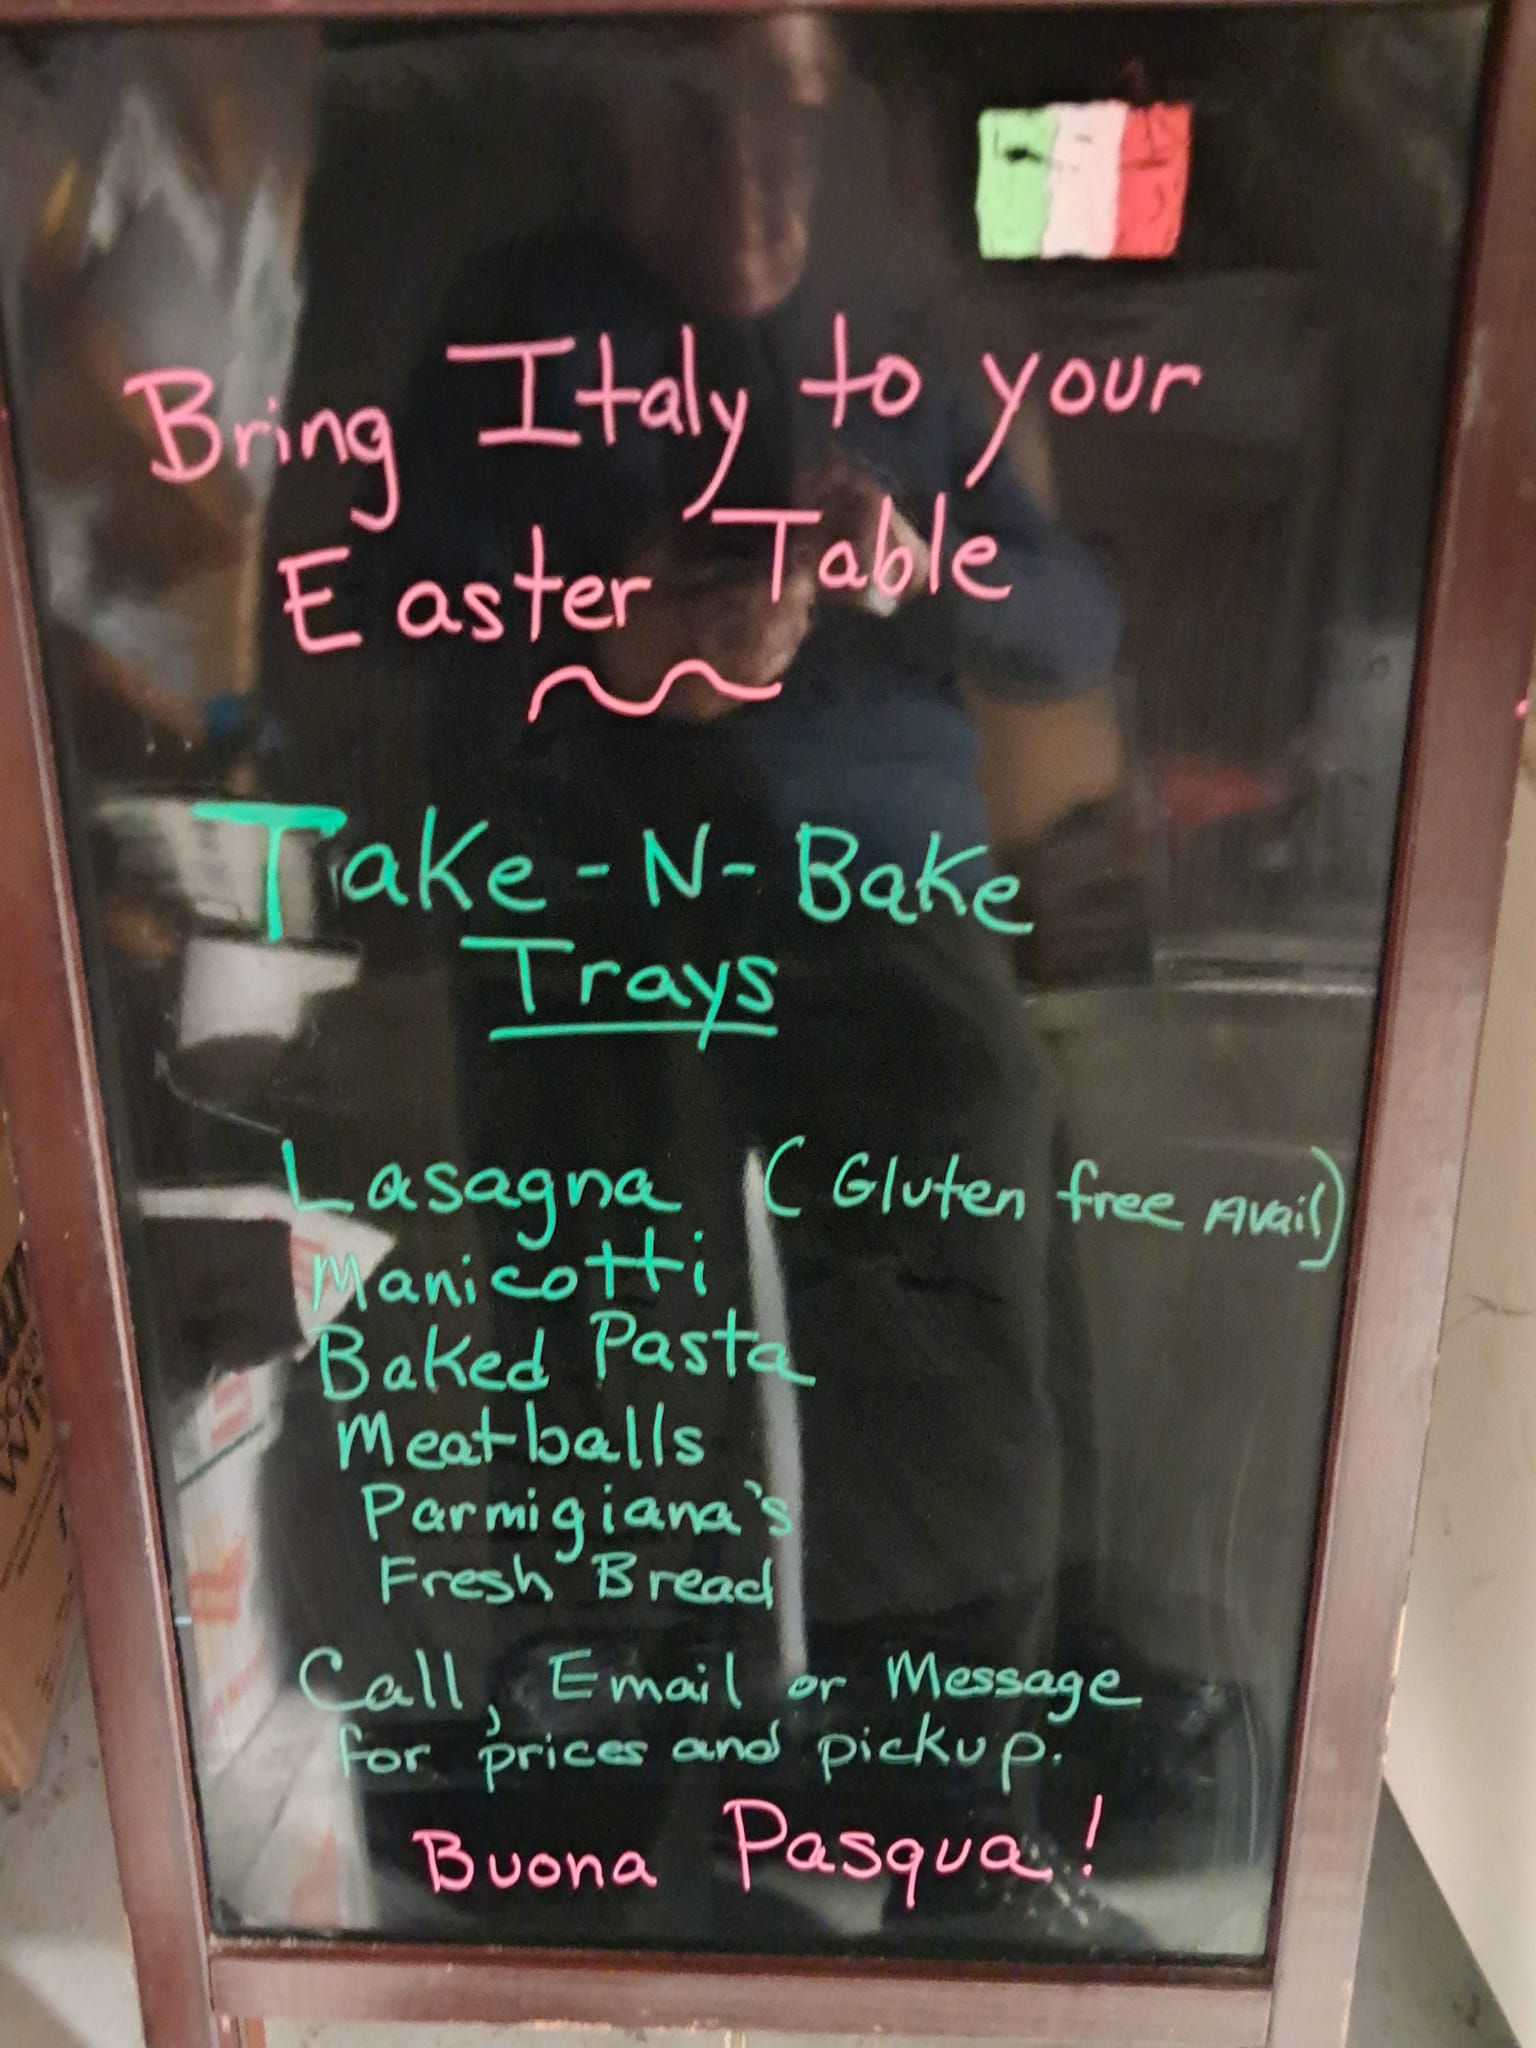 Bring Italy to your
Easter Table
Take-N-Bake
Trays
Lasagna (Gluten free Avail)
Manicotti
Baked Pasta
Meatballs
Parmigiana's
Fresh Bread
Call, Email or Message
for prices and pickup.
Buona Pasqua!